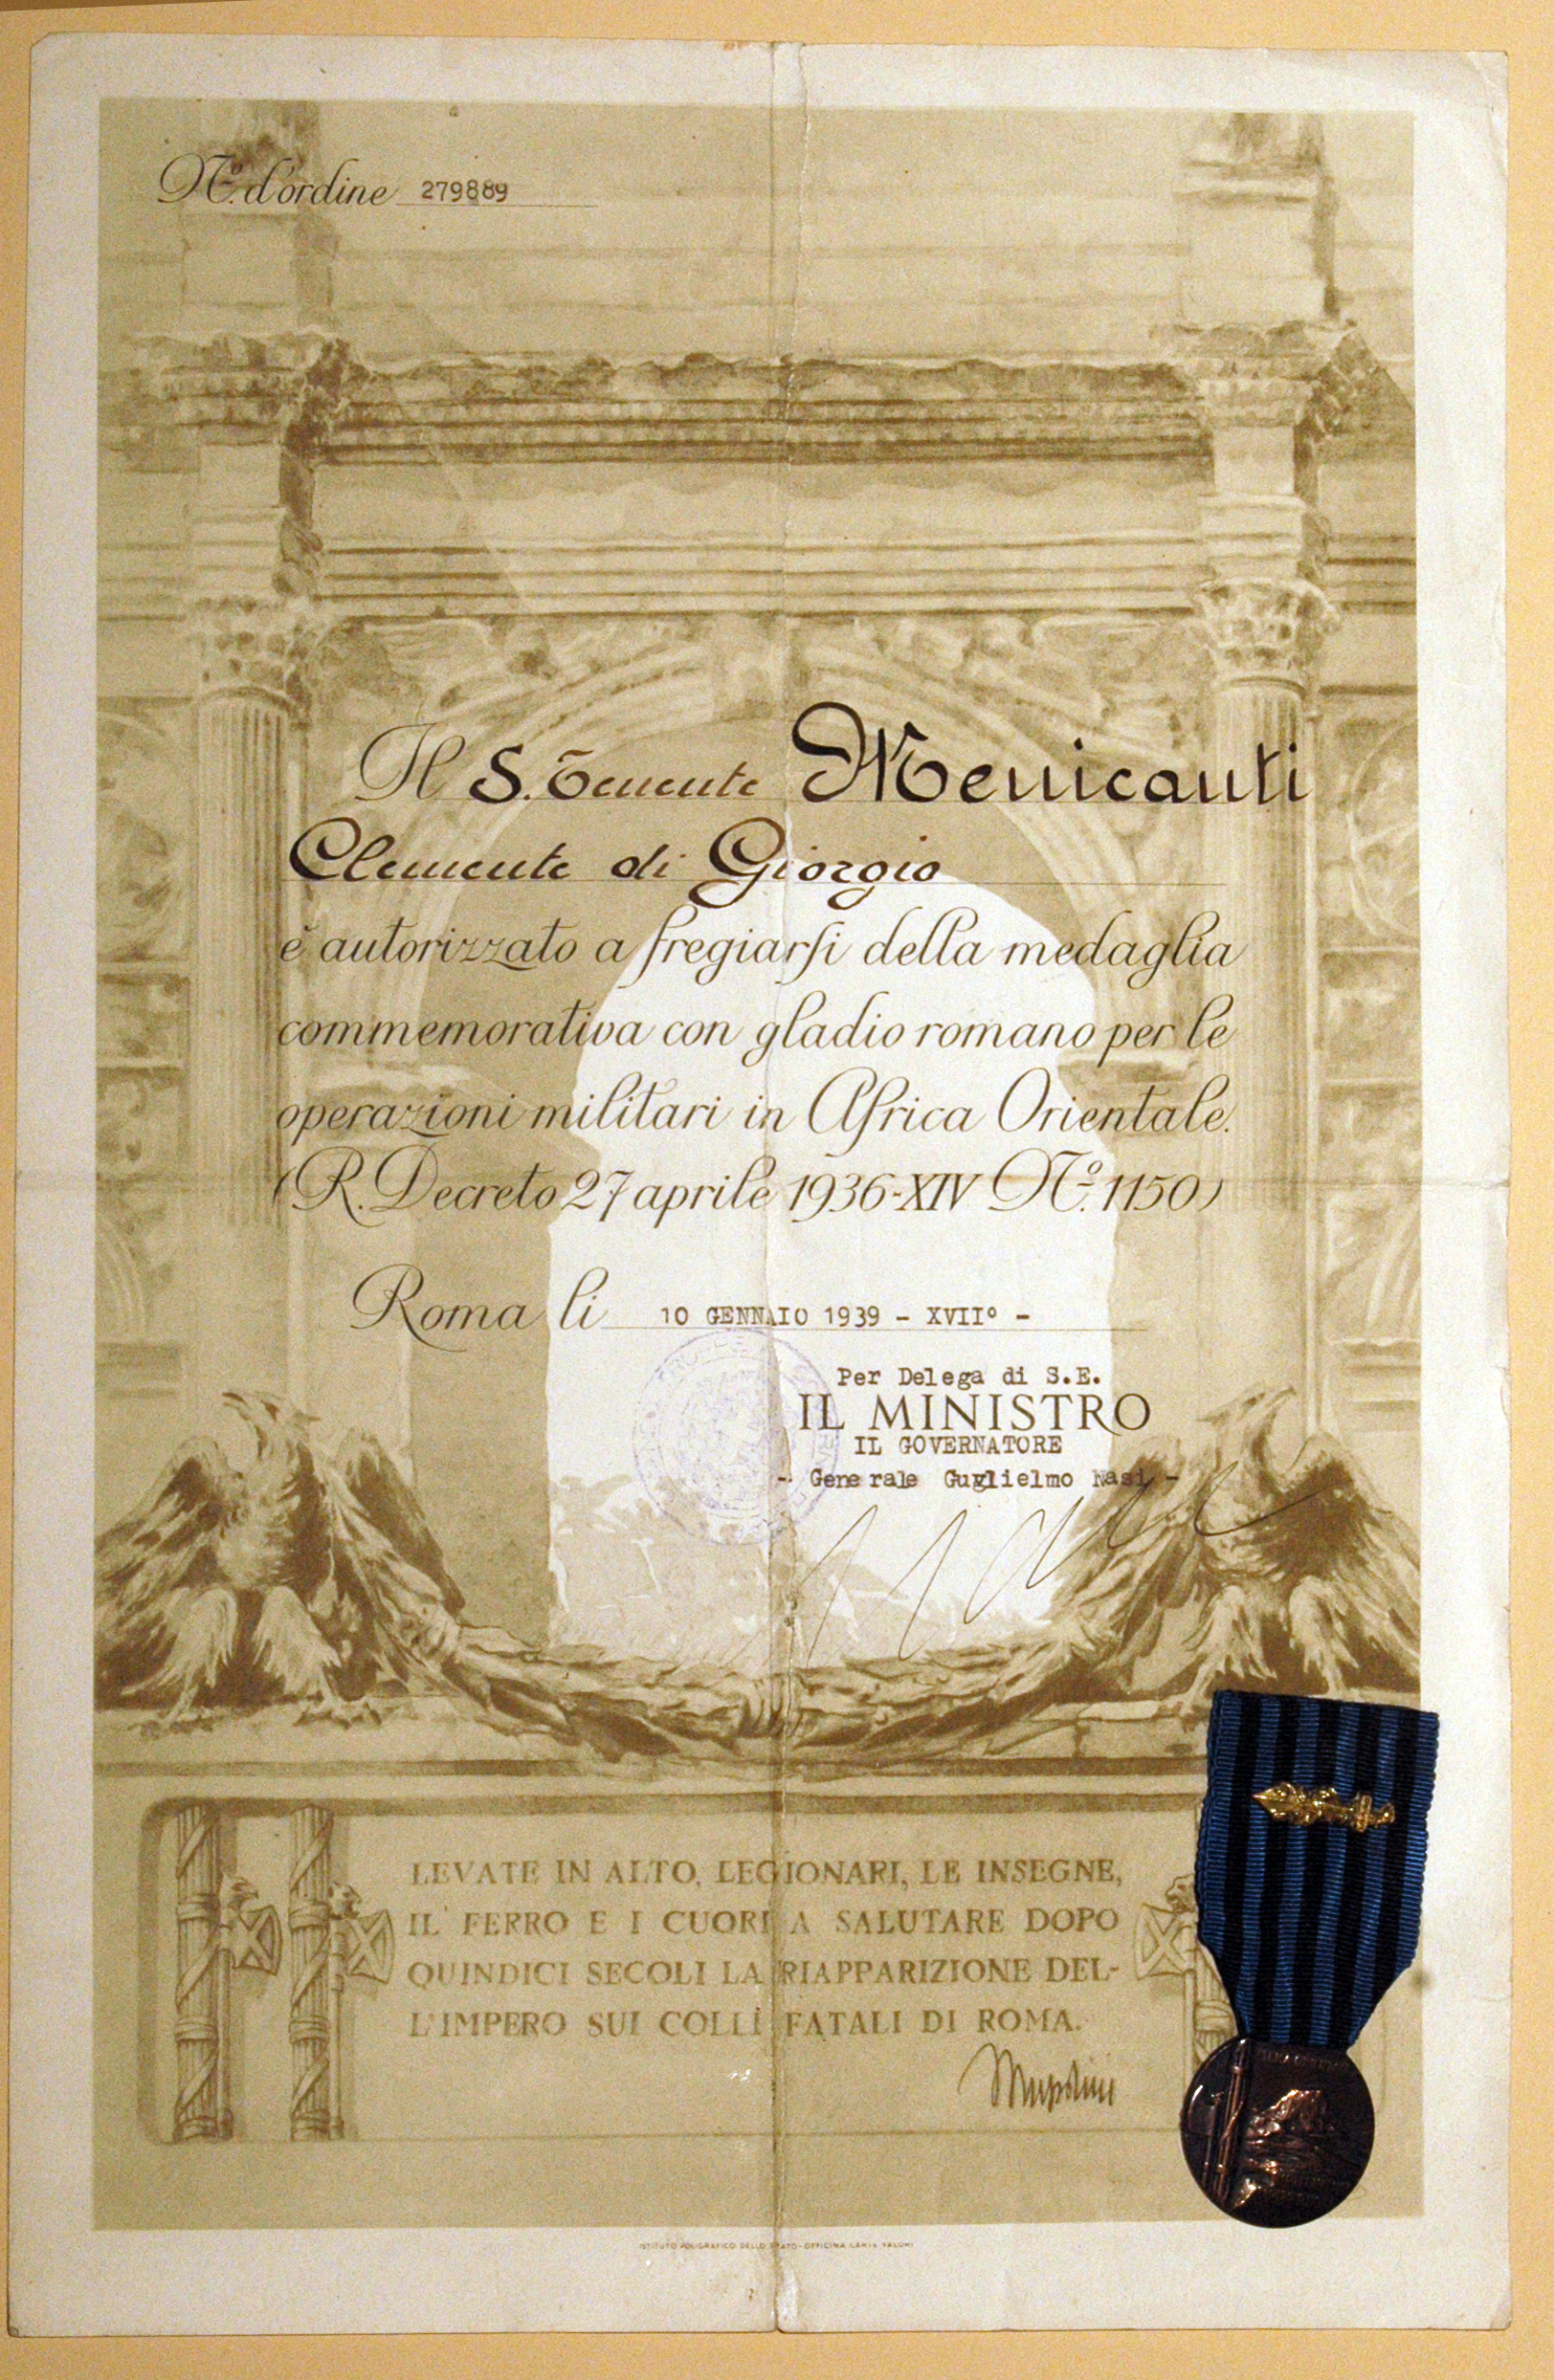 N.º d'ordine 279889
Il S. Tenente Menicanti
Clemente di Giorgio
è autorizzato a fregiarsi della medaglia
commemorativa con gladio romano per le
operazioni militari in Africa Orientale.
(R. Decreto 27 aprile 1936-XIV N.º 1150)
Roma li 10 GENNAIO 1939 - XVIIº -
Per Delega di S.E.
IL MINISTRO
IL GOVERNATORE
- Generale Guglielmo Nasi -
LEVATE IN ALTO, LEGIONARI, LE INSEGNE,
IL FERRO E I CUORI A SALUTARE DOPO
QUINDICI SECOLI LA RIAPPARIZIONE DEL-
L'IMPERO SUI COLLI FATALI DI ROMA.
Mussolini
ISTITUTO POLIGRAFICO DELLO STATO - OFFICINA CARTE VALORI